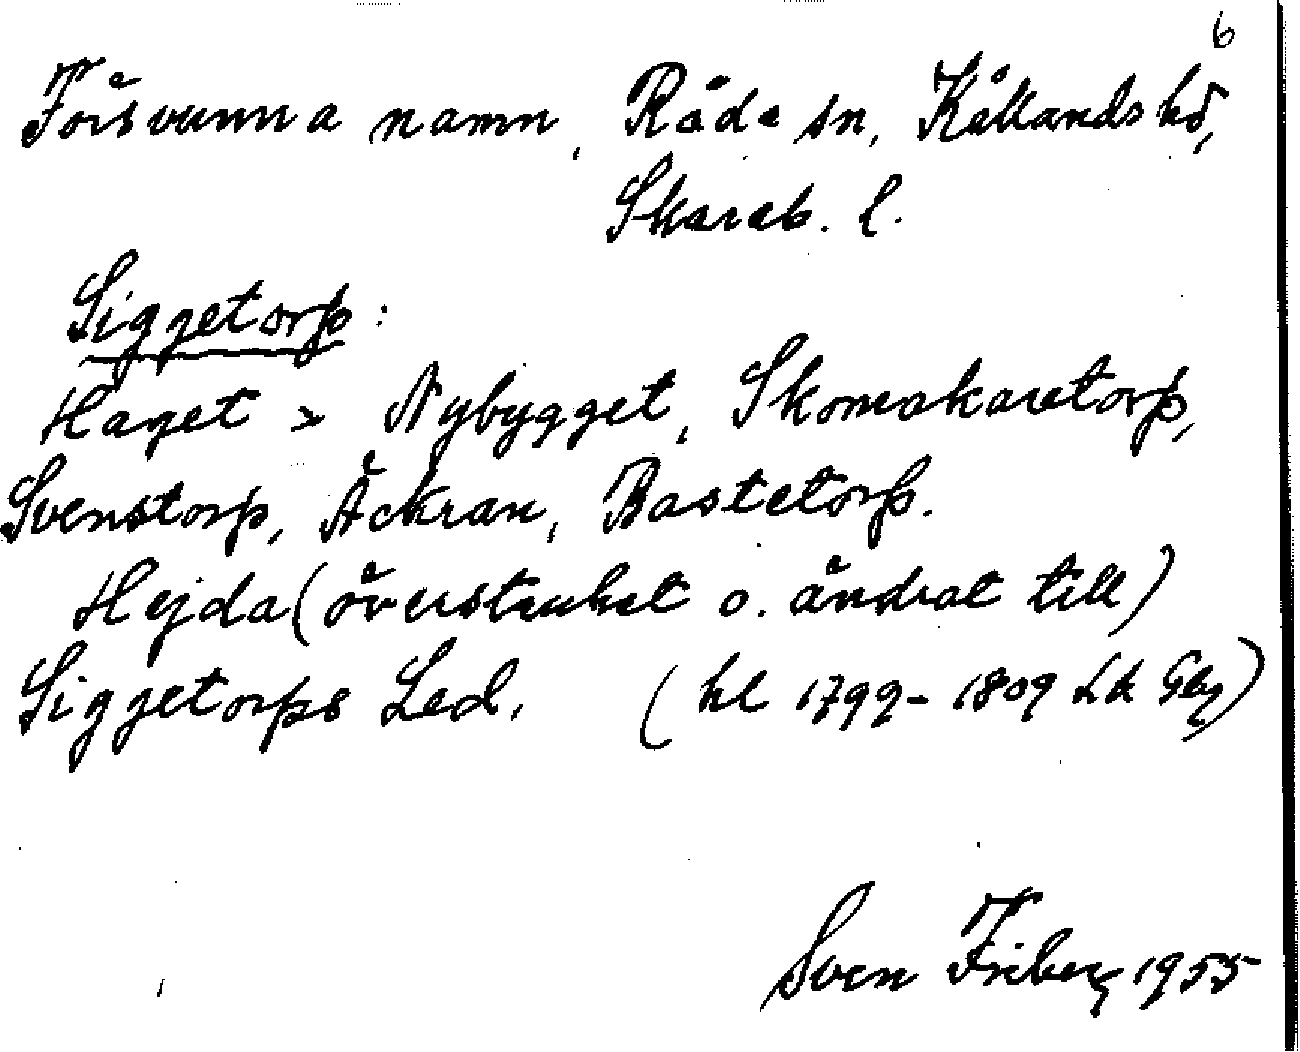 6
Försvunna namn, Råda sn, Kållands hd,
Skarab. l.
Siggetorp:
Haget > Nybygget, Skomakaretorp,
Svenstorp, Äckran, Bastetorp.
Hejda (överstruket o. ändrat till)
Siggetorps Led. (hl 1799-1809 Lk Gbg)
Sven Friberg 1955